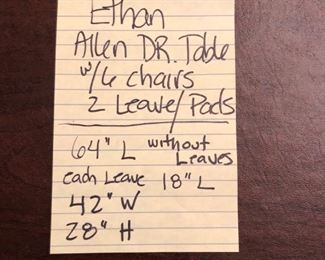 Ethan
Allen DR. Table
w/6 chairs
2 Leave/Pads
64" L without Leaves
each Leave 18" L
42" W
28" H